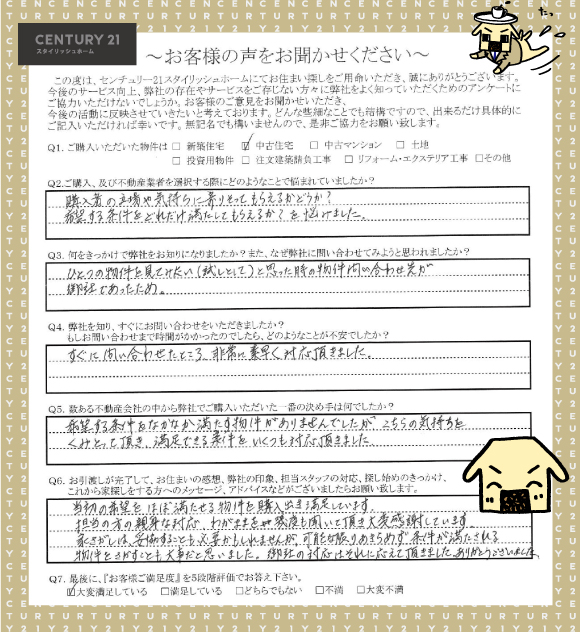 CENTURY 21
スタイリッシュホーム
～お客様の声をお聞かせください～
この度は、センチュリー21スタイリッシュホームにてお住まい探しをご用命いただき、誠にありがとうございます。
今後のサービス向上、弊社の存在やサービスをご存じない方々に弊社をよく知っていただくためのアンケートに
ご協力いただけないでしょうか。お客様のご意見をお聞かせいただき、
今後の活動に反映させていきたいと考えております。どんな些細なことでも結構ですので、出来るだけ具体的に
ご記入いただければ幸いです。無記名でも構いませんので、是非ご協力をお願い致します。
Q1. ご購入いただいた物件は □ 新築住宅 ☑ 中古住宅 □ 中古マンション □ 土地
□ 投資用物件 □ 注文建築請負工事 □ リフォーム・エクステリア工事 □その他
Q2.ご購入、及び不動産業者を選択する際にどのようなことで悩まれていましたか?
購入者の立場や気持ちに寄りそってもらえるかどうか?
希望する条件をどれだけ満たしてもらえるか?を悩みました。
Q3. 何をきっかけで弊社をお知りになりましたか?また、なぜ弊社に問い合わせてみようと思われましたか?
ひとつの物件を見てみたい(試しとして)と思った時の物件問い合わせ先が
御社であったため。
Q4. 弊社を知り、すぐにお問い合わせをいただきましたか?
もしお問い合わせまで時間がかかったのでしたら、どのようなことが不安でしたか?
すぐに問い合わせたところ、非常に素早く対応頂きました。
Q5. 数ある不動産会社の中から弊社でご購入いただいた一番の決め手は何でしたか?
希望する条件をなかなか満たす物件がありませんでしたが、こちらの気持ちを
くみとって頂き、満足できる条件をいくつも対応頂きました。
Q6. お引渡しが完了して、お住まいの感想、弊社の印象、担当スタッフの対応、探し始めのきっかけ、
これから家探しをする方へのメッセージ、アドバイスなどがございましたらお願い致します。
当初の希望をほぼ満たせる物件を購入出来満足しています。
担当の方の親身な対応、わがままを何度も聞いて頂き大変感謝しています。
家さがしは、妥協することも必要かもしれませんが、可能な限りあきらめず、条件が満たされる
物件をさがすことも大事だと思いました。御社の対応はそれに応えて頂きました。ありがとうございました。
Q7. 最後に、『お客様ご満足度』を5段階評価でお答え下さい。
☑大変満足している □満足している □どちらでもない □不満 □大変不満